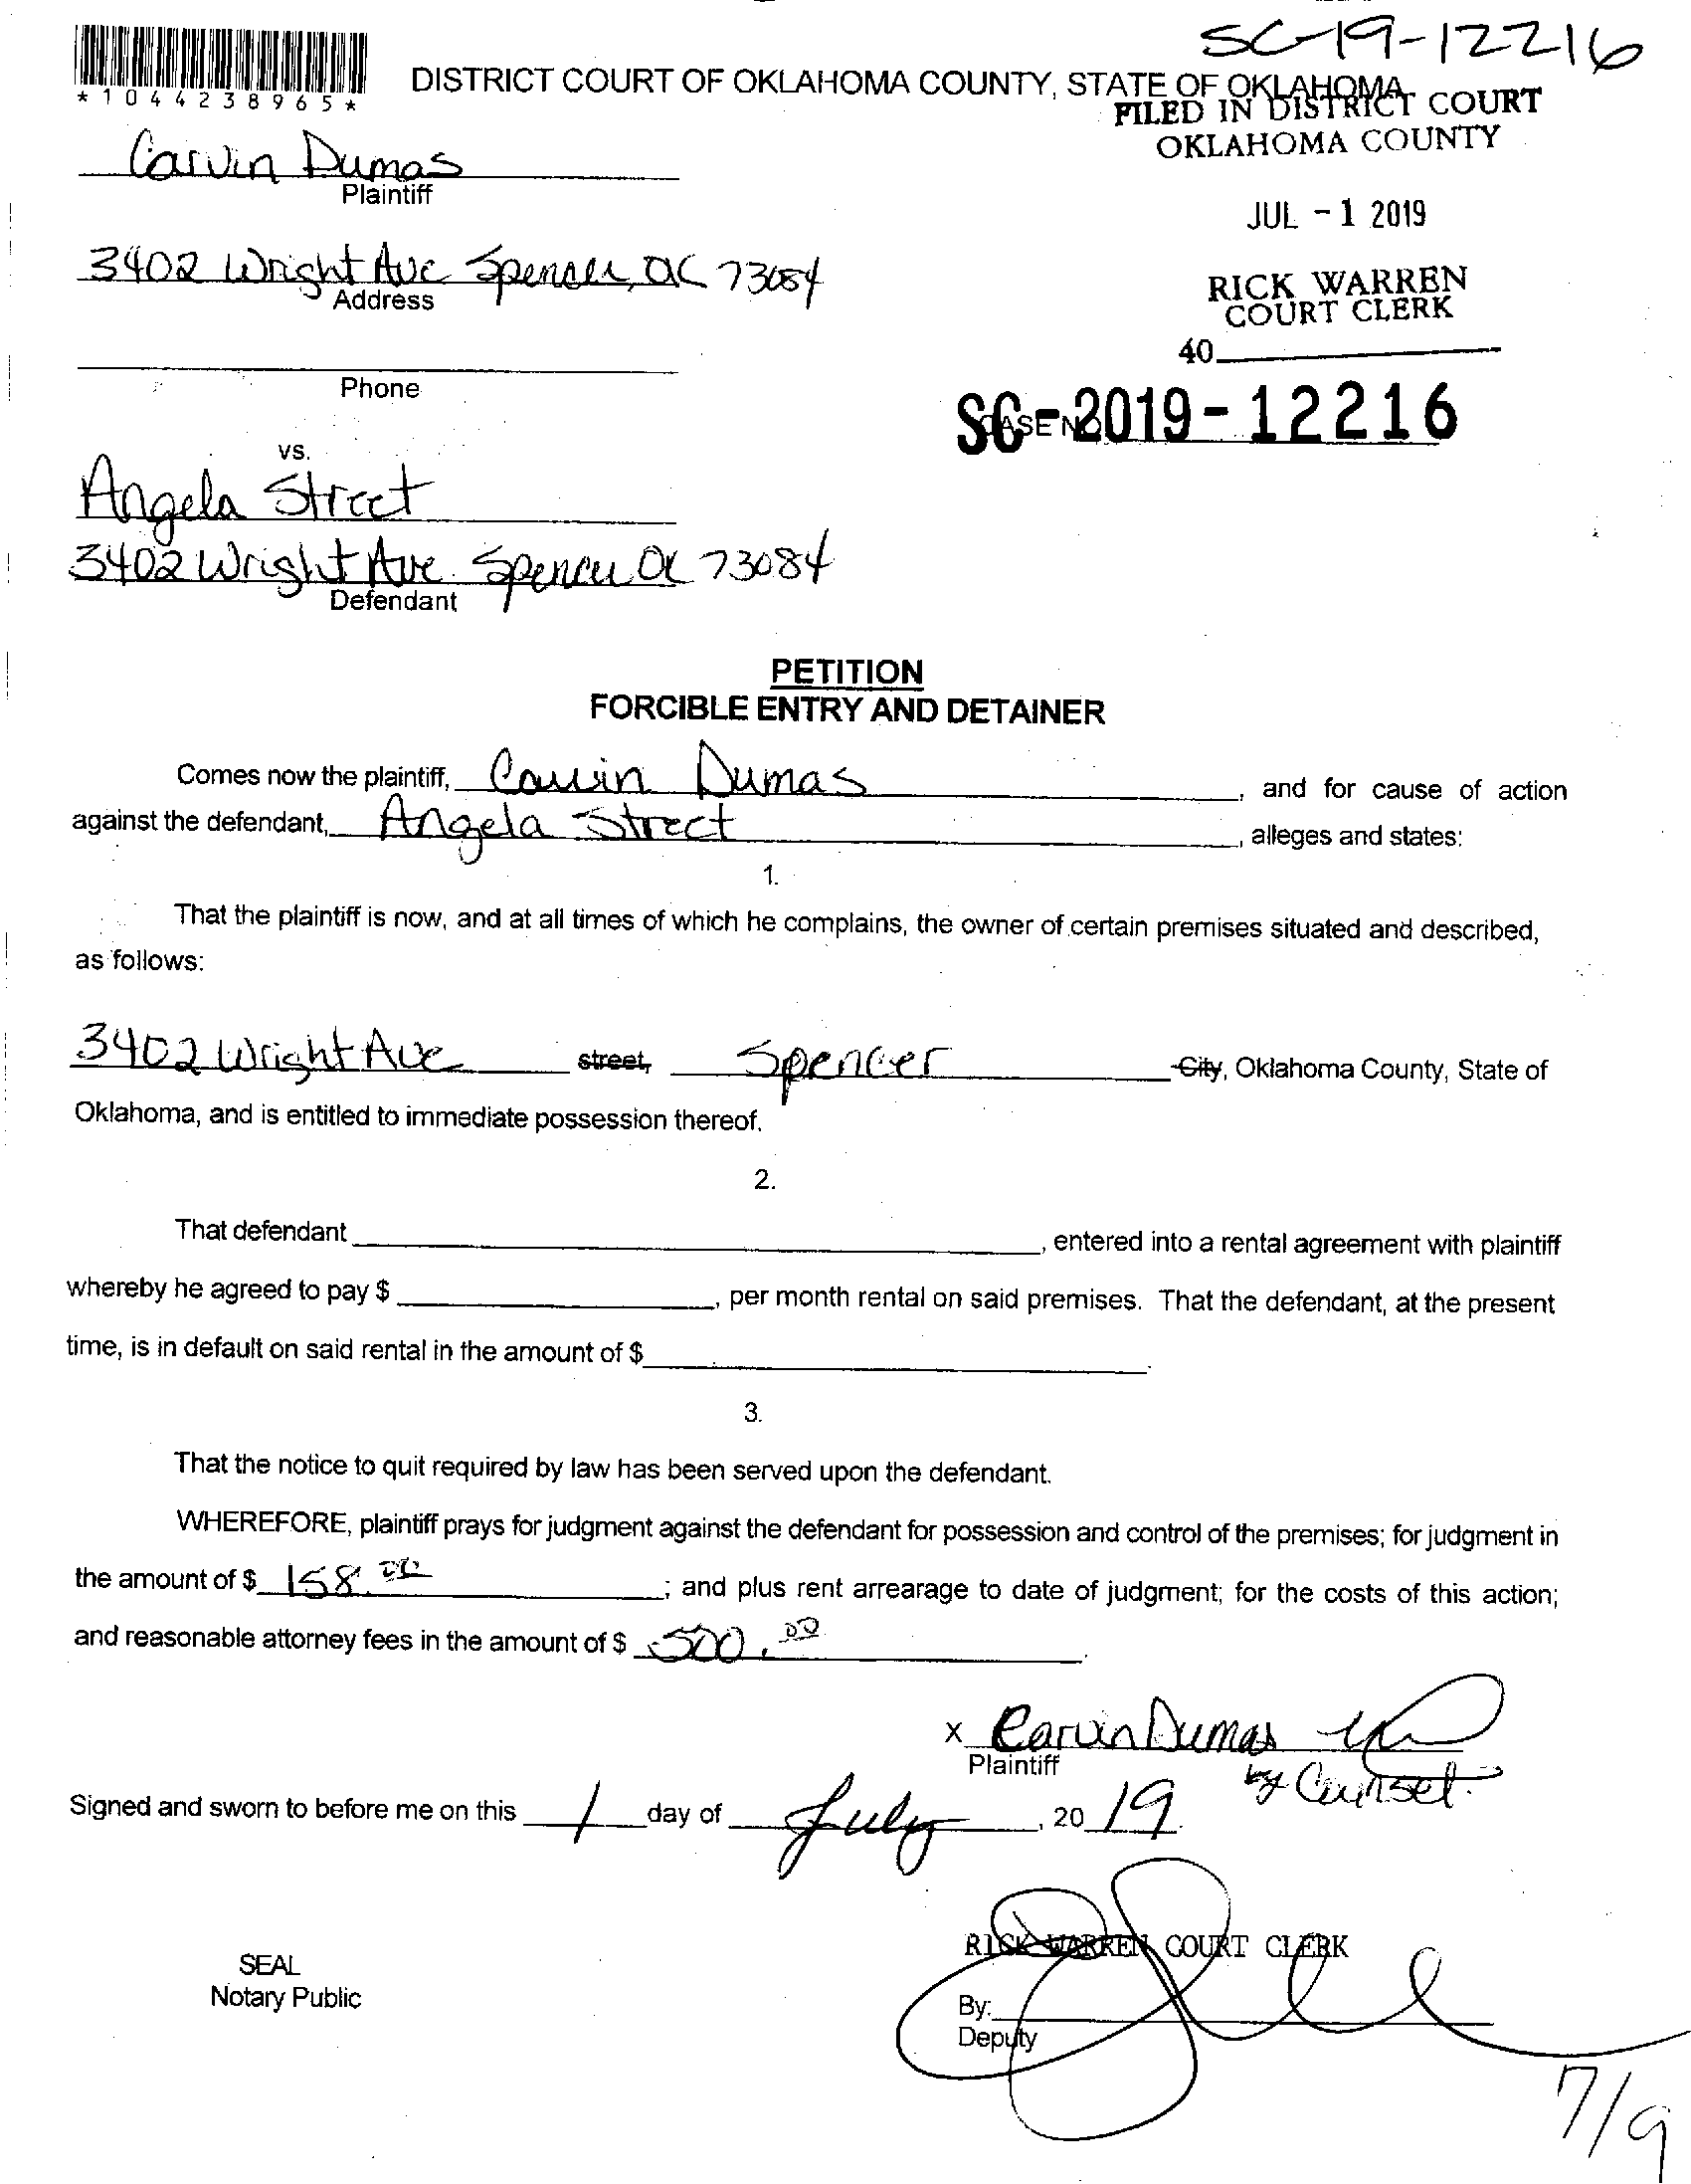 SC-19-12216
*1044238965*
DISTRICT COURT OF OKLAHOMA COUNTY, STATE OF OKLAHOMA
FILED IN DISTRICT COURT
OKLAHOMA COUNTY
Carvin Dumas
Plaintiff
JUL - 1 2019
3402 Wright Ave Spencer, OK 73084
Address
RICK WARREN
COURT CLERK
40
Phone
CASE NO.
SC-2019-12216
vs.
Angela Street
3402 Wright Ave. Spencer OK 73084
Defendant
PETITION
FORCIBLE ENTRY AND DETAINER
Comes now the plaintiff, Carvin Dumas, and for cause of action
against the defendant, Angela Street, alleges and states:
1.
That the plaintiff is now, and at all times of which he complains, the owner of certain premises situated and described,
as follows:
3402 Wright Ave street, Spencer City, Oklahoma County, State of
Oklahoma, and is entitled to immediate possession thereof.
2.
That defendant, entered into a rental agreement with plaintiff
whereby he agreed to pay $, per month rental on said premises. That the defendant, at the present
time, is in default on said rental in the amount of $
3.
That the notice to quit required by law has been served upon the defendant.
WHEREFORE, plaintiff prays for judgment against the defendant for possession and control of the premises; for judgment in
the amount of $ 158.00; and plus rent arrearage to date of judgment; for the costs of this action;
and reasonable attorney fees in the amount of $ 500.00.
x Carvin Dumas
Plaintiff
by Counsel.
Signed and sworn to before me on this 1 day of July, 2019.
RICK WARREN COURT CLERK
SEAL
Notary Public
By:
Deputy
7/9